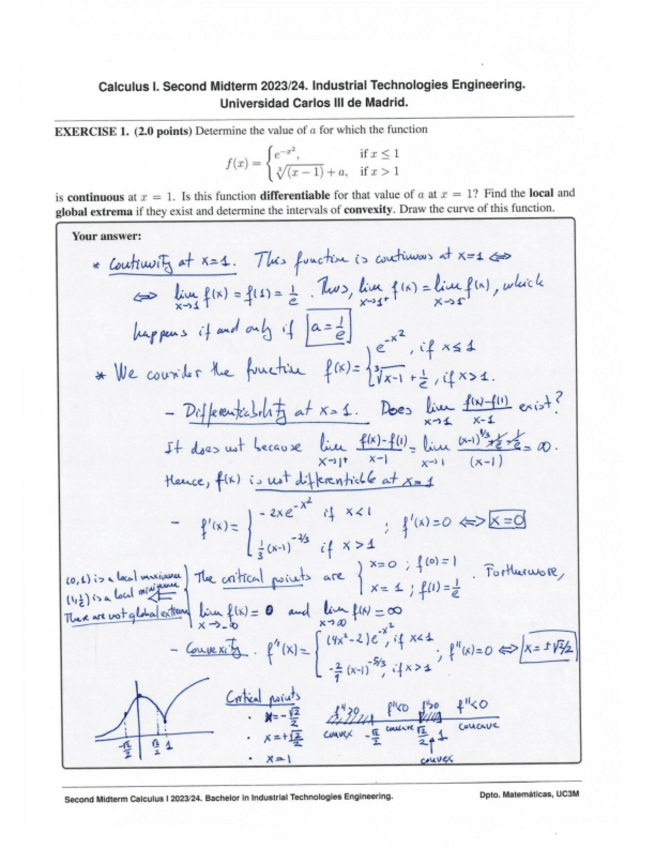 Calculus I. Second Midterm 2023/24. Industrial Technologies Engineering.
Universidad Carlos III de Madrid.
EXERCISE 1. (2.0 points) Determine the value of a for which the function
f(x) = { e^{-x²}, if x ≤ 1
∛(x − 1) + a, if x > 1
is continuous at x = 1. Is this function differentiable for that value of a at x = 1? Find the local and
global extrema if they exist and determine the intervals of convexity. Draw the curve of this function.
Your answer:
* Continuity at x=1. This function is continuous at x=1 ⇔
⇔ lim_{x→1} f(x) = f(1) = 1/e. Thus, lim_{x→1⁺} f(x) = lim_{x→1⁻} f(x), which
happens if and only if a = 1/e
* We consider the function f(x) = { e^{-x²}, if x ≤ 1
∛x-1 + 1/e, if x>1.
- Differentiability at x=1. Does lim_{x→1} f(x)-f(1)/x-1 exist?
It does not because lim_{x→1⁺} f(x)-f(1)/x-1 = lim_{x→1} (x-1)^{1/3}+1/e-1/e/(x-1) = ∞.
Hence, f(x) is not differentiable at x=1
- f'(x) = { -2xe^{-x²} if x<1
1/3 (x-1)^{-2/3} if x>1 ; f'(x)=0 ⇔ x=0
(0,1) is a local maximum
(1,1/e) is a local minimum
There are not global extrema
The critical points are { x=0 ; f(0)=1
x=1 ; f(1)=1/e . Furthermore,
lim_{x→-∞} f(x) = 0 and lim_{x→∞} f(x) = ∞
- Convexity. f''(x) = { (4x²-2)e^{-x²}, if x<1
-2/9 (x-1)^{-5/3}, if x>1 ; f''(x)=0 ⇔ x=±√2/2
Critical points
· x=-√2/2
· x=+√2/2
· x=1
f''>0 f''<0 f''>0 f''<0
convex -√2/2 concave √2/2 1 concave
convex
-√2/2 √2/2 1
Second Midterm Calculus I 2023/24. Bachelor in Industrial Technologies Engineering.
Dpto. Matemáticas, UC3M